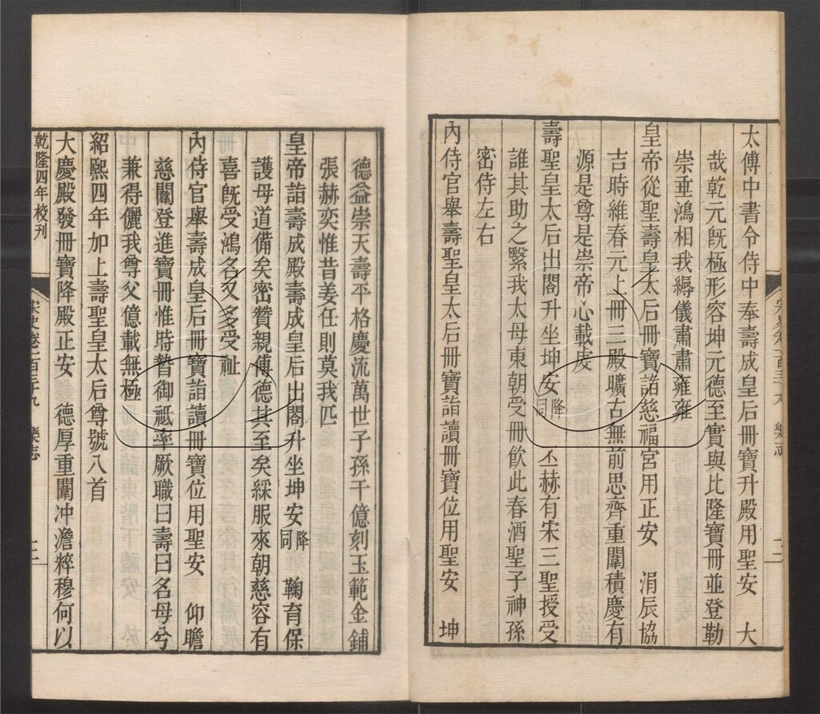 太傅中書令侍中奉壽成皇后冊寶升殿用聖安　大
哉乾元既極形容坤元德至實與比隆寶冊並登勒
崇垂鴻相我縟儀肅肅雍雍
皇帝從聖壽皇太后冊寶詣慈福宮用正安　涓辰協
吉時維春元上冊三殿曠古無前思齊重闈積慶有
源是尊是崇帝心載虔
壽聖皇太后出閤升坐坤安降同　丕赫有宋三聖授受
誰其助之繄我太母東朝受冊飲此春酒聖子神孫
密侍左右
內侍官舉壽聖皇太后冊寶詣讀冊寶位用聖安　坤
德益崇天壽平格慶流萬世子孫千億刻玉範金鋪
張赫奕惟昔姜任則莫我匹
皇帝詣壽成殿壽成皇后出閤升坐坤安降同　鞠育保
護母道備矣密贊親傳德其至矣綵服來朝慈容有
喜既受鴻名又多受祉
內侍官舉壽成皇后冊寶詣讀冊寶位用聖安　仰瞻
慈闈登進寶冊惟時暬御祗率厥職曰壽曰名母兮
兼得儷我尊父億載無極
紹熙四年加上壽聖皇太后尊號八首
大慶殿發冊寶降殿正安　德厚重闈冲澹粹穆何以
乾隆四年校刊
宋史卷一百三十九　樂志